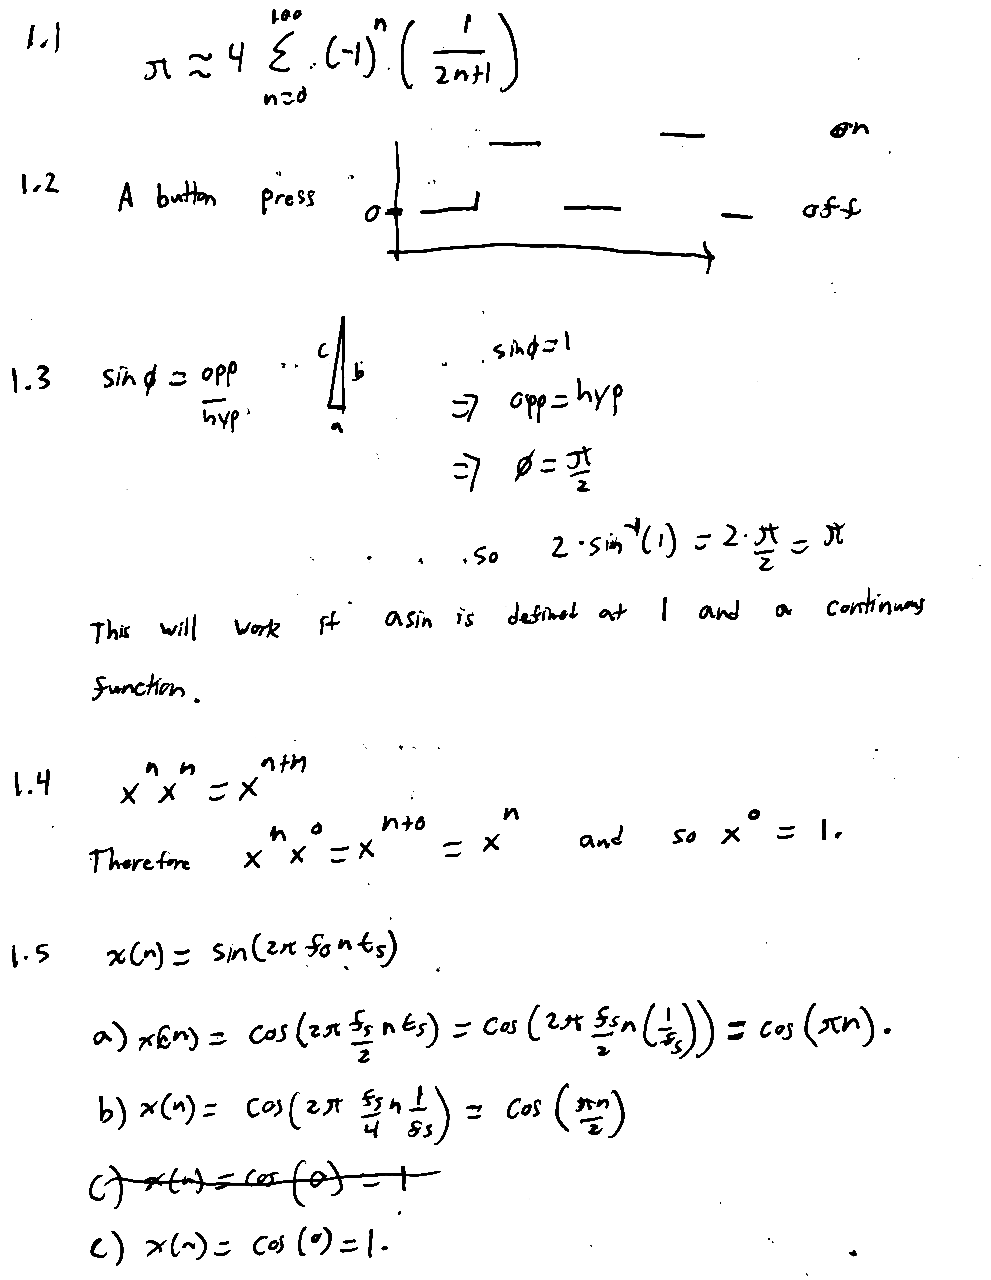 1.1 π ≈ 4 Σ_{n=0}^{100} (-1)^n (1/(2n+1))
1.2 A button press 0 on off
1.3 sin φ = opp/hyp. c b a sin φ = 1
⇒ opp = hyp
⇒ φ = π/2
so 2 · sin^{-1}(1) = 2 · π/2 = π
This will work if asin is defined at 1 and a continuous
function.
1.4 x^n x^n = x^{n+n}
Therefore x^n x^0 = x^{n+0} = x^n and so x^0 = 1.
1.5 x(n) = sin(2π f_0 n t_s)
a) x(n) = cos(2π f_s/2 n t_s) = cos(2π f_s/2 n (1/f_s)) = cos(πn).
b) x(n) = cos(2π f_s/4 n 1/f_s) = cos(πn/2)
c) x(n) = cos(0) = 1
c) x(n) = cos(0) = 1.